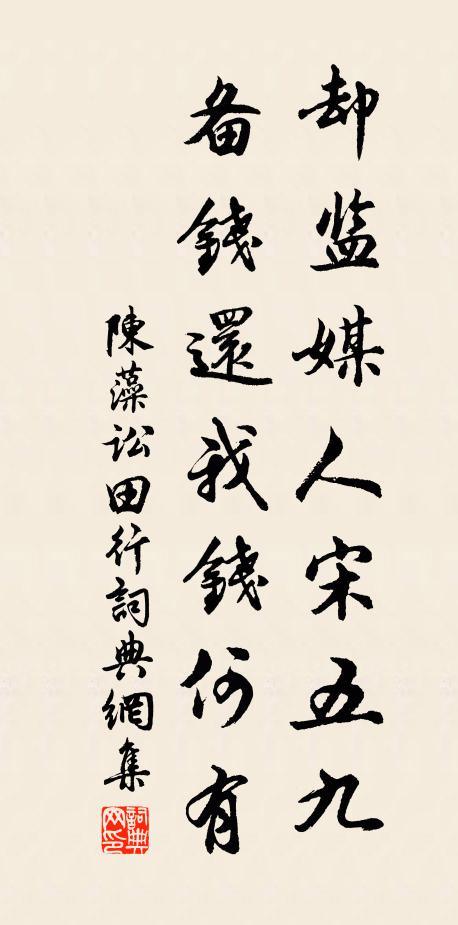 却监媒人宋五九
备錢還我錢何有
陳藻訟田行詞典網集
詞典网印